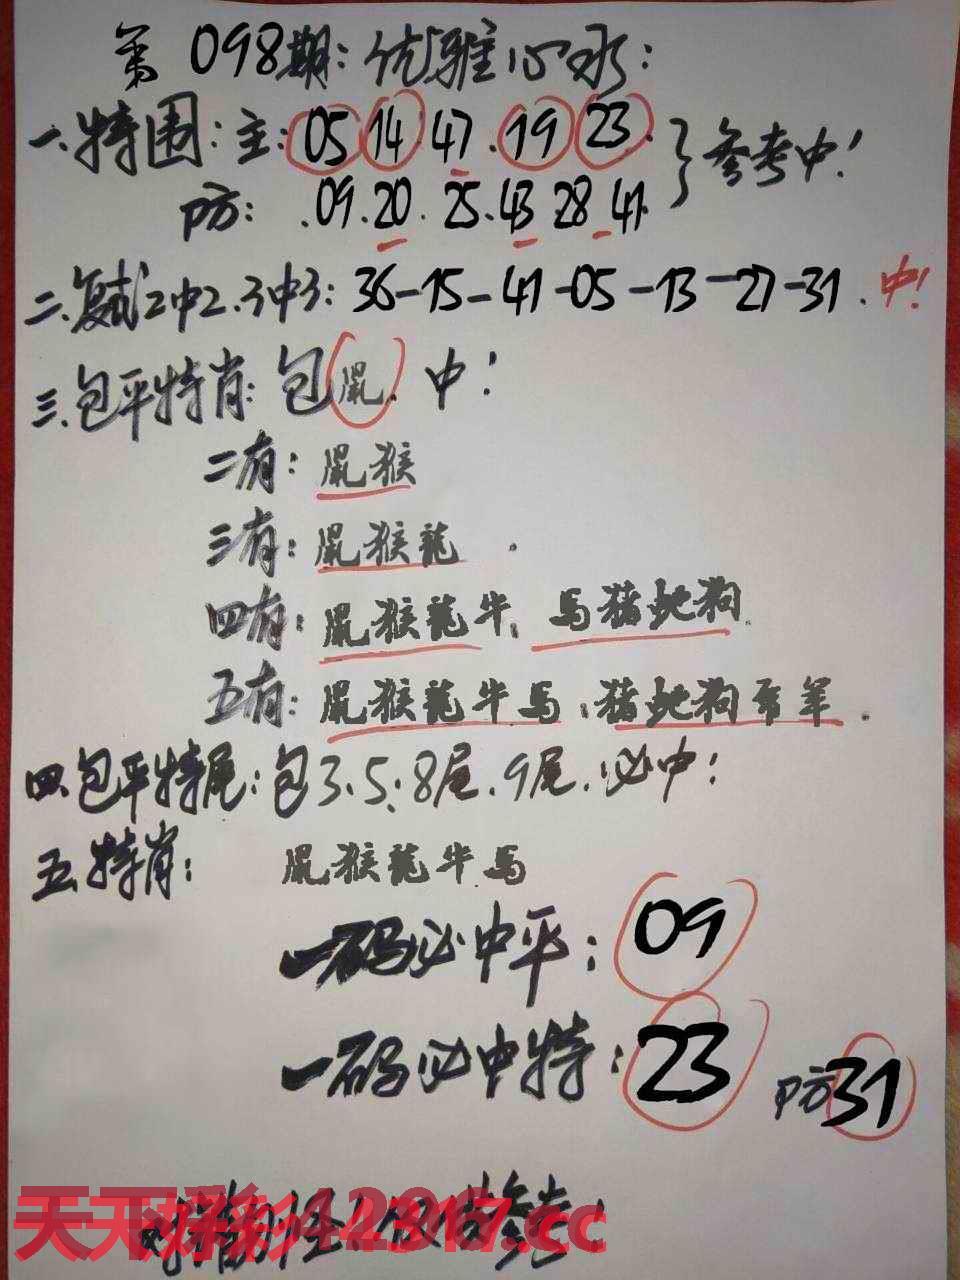 第098期：优雅心水：
一.特围：主：05 14 47.19 23.｝参考中！
防：.09.20.25.43 28 41.
二.复试2中2.3中3：36-15-41-05-13-27-31.中！
三.包平特肖：包鼠.中！
二有：鼠猴
三有：鼠猴龍.
四有：鼠猴龍牛.馬猪蛇狗.
五有：鼠猴龍牛馬.猪蛇狗 羊.
四.包平特尾：包3.5.8尾.9尾.必中！
五.特肖：鼠猴龍牛馬
一码必中平：09
一码必中特：23 防31
天天好彩 .cc